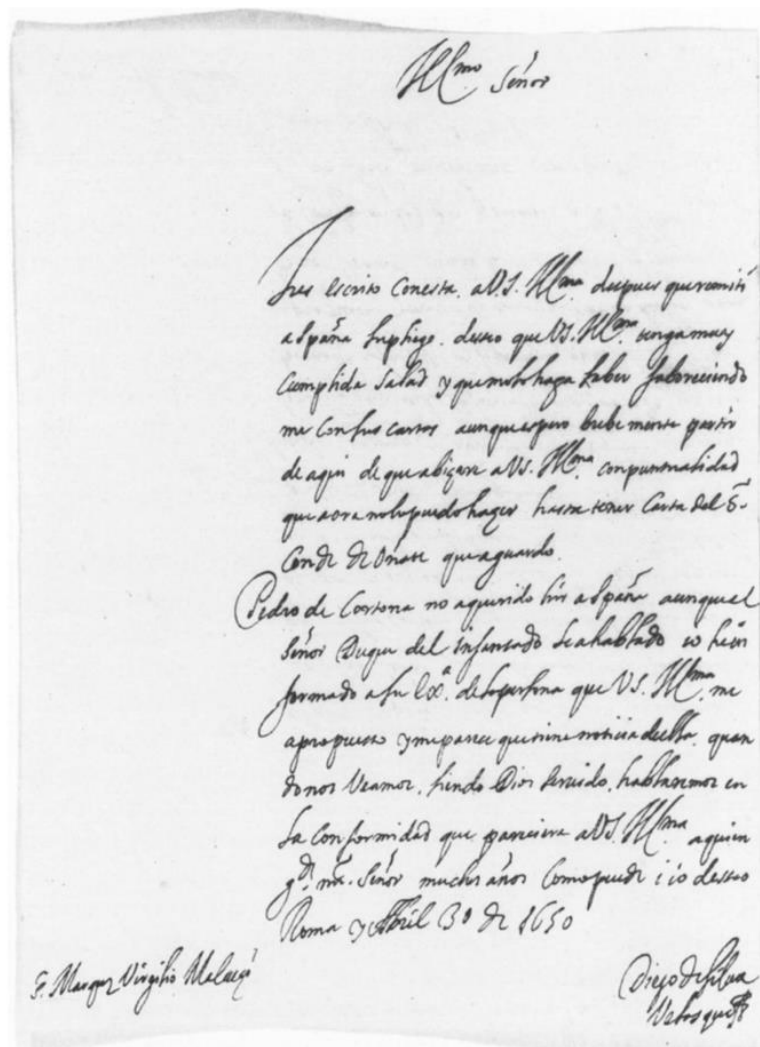 Illmo. Señor
Tres escrito con esta a V.S. Illma. despues que remiti
a España su pliego. deseo que VS. Illma. tenga muy
cumplida salud y que me lo haga saber faboreciendo
me con sus cartas aunque espero brebemente partir
de aqui de que abiçare a VS. Illma. con puntualidad
que aora no lo puedo haçer hasta tener carta del Sr.
Conde de Oñate que aguardo.
Pedro de Cortona no a querido hir a España aunque el
señor Duque del infantado le a hablado io he in
formado a su Exa. de la persona que VS. Illma. me
a propuesto y me parece que tiene noticia della. quan
do nos veamos, siendo Dios servido, hablaremos en
la conformidad que pareciera a VS. Illma. a quien
gde. nro. Señor muchos años como puede i io deseo
Roma y Abril 30 de 1650
Sr. Marques Virgilio Malveçi
Diego de Silva
Velasquez